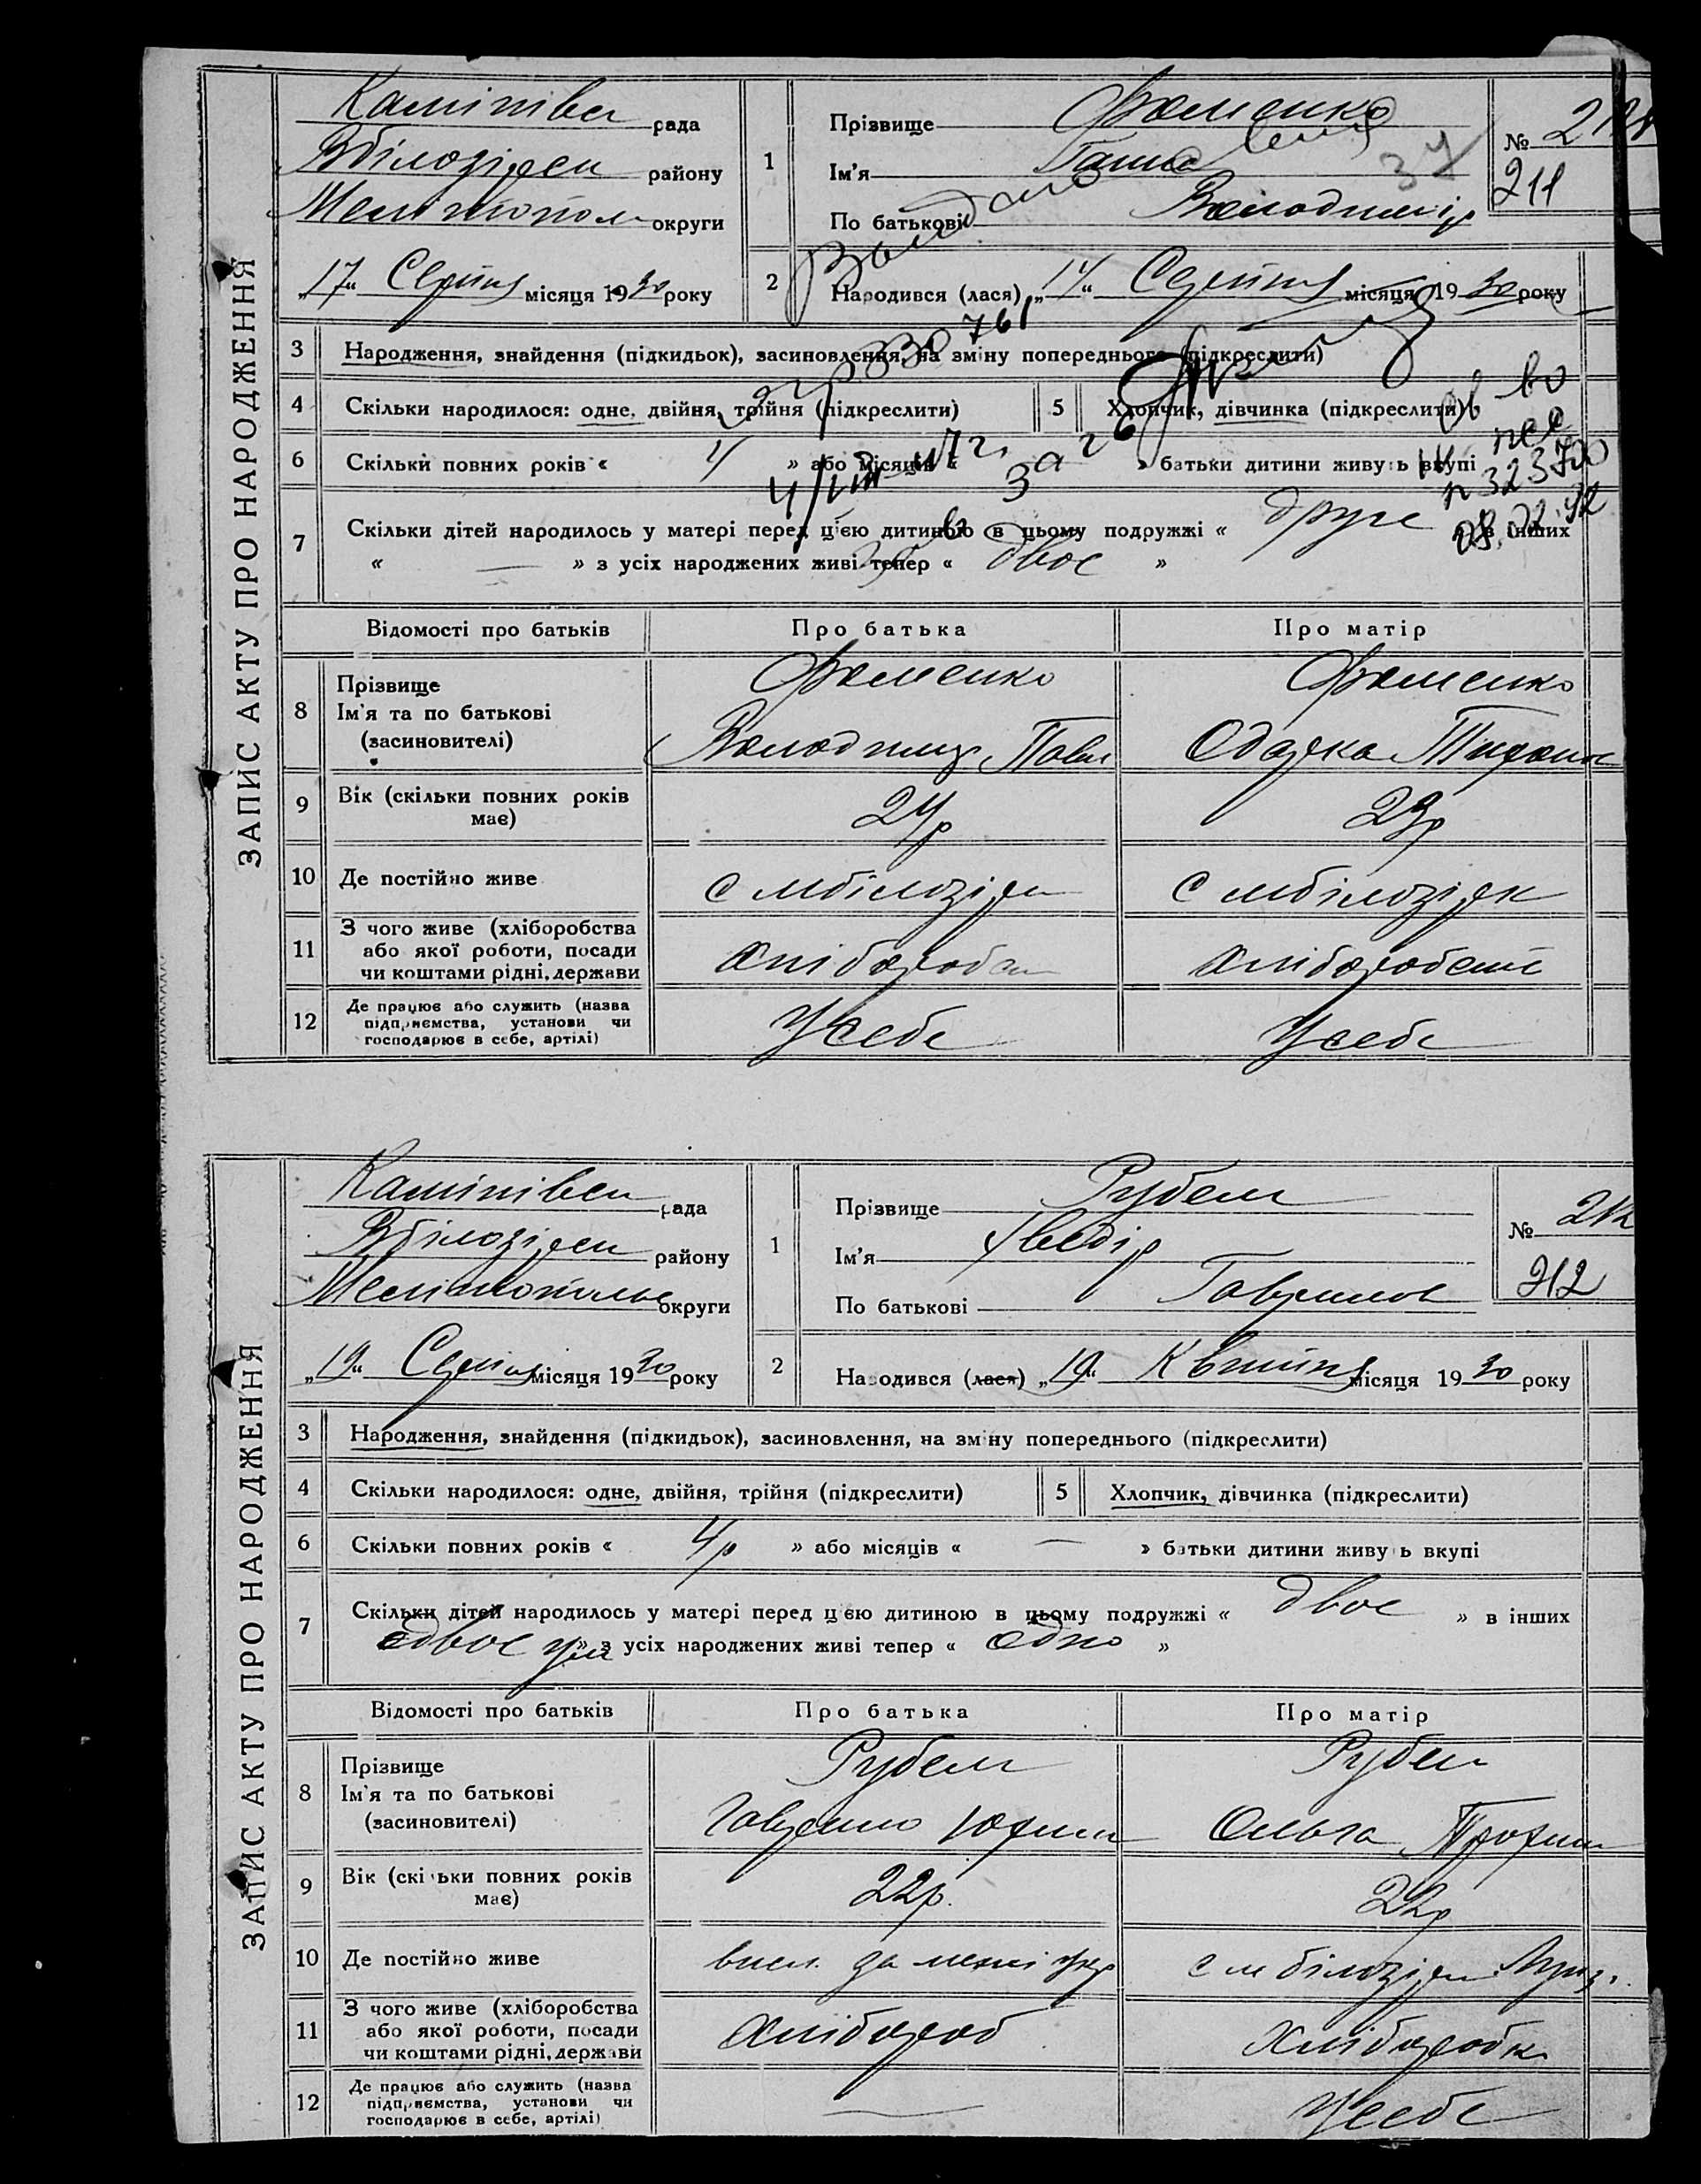 ЗАПИС АКТУ ПРО НАРОДЖЕННЯ
Камінівськ рада
Вбілозірськ району
Мелітополь округи
„17“ Серпня місяця 1930 року
1
Прізвище Фоменко
Ім'я Ганна
По батькові Володимір
№ 211
2
Народився (лася) „14“ Серпня місяця 1930 року
3 Народження, знайдення (підкидьок), засиновлення, на зміну попереднього (підкреслити)
4 Скільки народилося: одне, двійня, трійня (підкреслити)
5 Хлопчик, дівчинка (підкреслити)
6 Скільки повних років « 4 » або місяців « » батьки дитини живуть вкупі
7 Скільки дітей народилось у матері перед цією дитиною в цьому подружжі « друге » в інших
« — » з усіх народжених живі тепер « двоє »
Відомості про батьків Про батька Про матір
8 Прізвище
Ім'я та по батькові
(засиновителі)
Фоменко
Володимир Павл
Фоменко
Одарка Тихонов
9 Вік (скільки повних років має)
24р
23р
10 Де постійно живе
с мбілозірк
с мбілозірк
11 З чого живе (хліборобства
або якої роботи, посади
чи коштами рідні, держави
хлібороб
хлібороб
12 Де працює або служить (назва
підприємства, установи чи
господарює в себе, артілі)
У себе
У себе
ЗАПИС АКТУ ПРО НАРОДЖЕННЯ
Камінівськ рада
Вбілозірськ району
Мелітополь округи
„19“ Серпня місяця 1930 року
1
Прізвище Рубель
Ім'я Хведір
По батькові Гаврилов
№ 212
212
2
Народився (лася) „19“ Квітня місяця 1930 року
3 Народження, знайдення (підкидьок), засиновлення, на зміну попереднього (підкреслити)
4 Скільки народилося: одне, двійня, трійня (підкреслити)
5 Хлопчик, дівчинка (підкреслити)
6 Скільки повних років « 4р » або місяців « — » батьки дитини живуть вкупі
7 Скільки дітей народилось у матері перед цією дитиною в цьому подружжі « двоє » в інших
» з усіх народжених живі тепер « одно »
Відомості про батьків Про батька Про матір
8 Прізвище
Ім'я та по батькові
(засиновителі)
Рубель
Гаврило Юхим
Рубель
Ольга Трохим
9 Вік (скільки повних років має)
22р.
22р
10 Де постійно живе
висл. за межі Укр
с м білозірк
11 З чого живе (хліборобства
або якої роботи, посади
чи коштами рідні, держави
хлібороб
хліборобка
12 Де працює або служить (назва
підприємства, установи чи
господарює в себе, артілі)
—
У себе